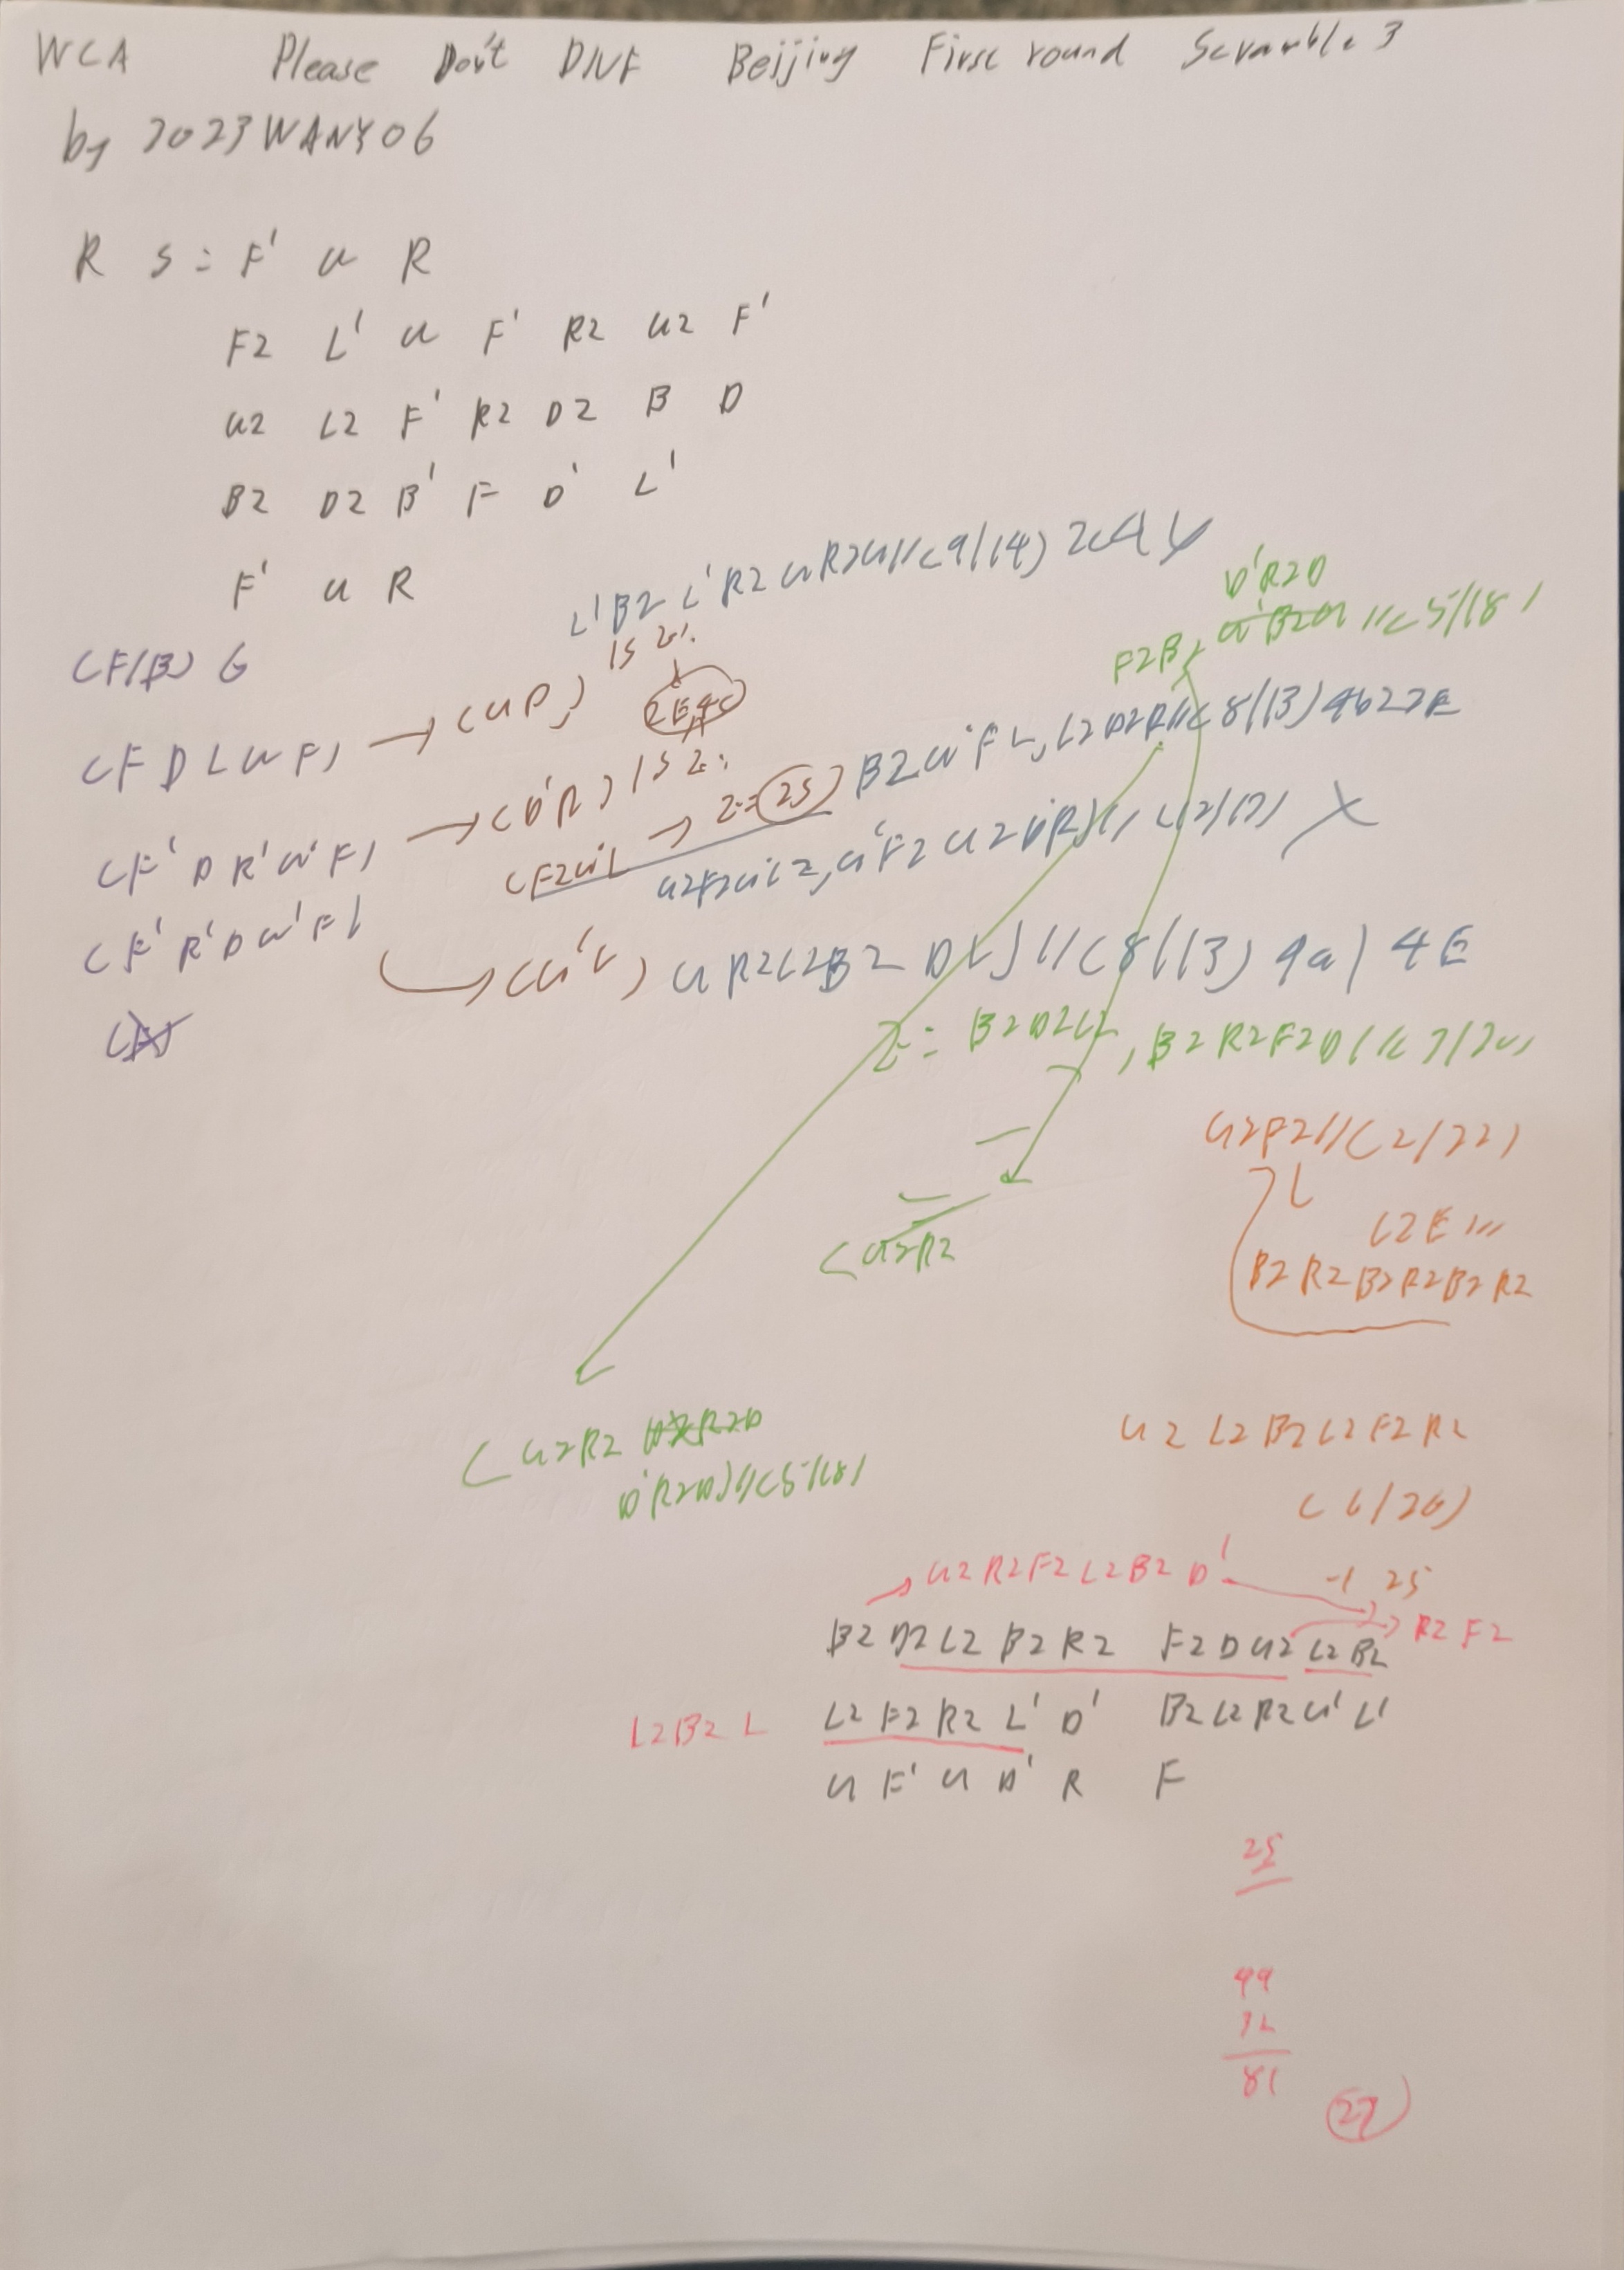 WCA Please Don't DNF Beijing First round Scramble 3
by 2023WANY06
R S: F' U R
F2 L' U F' R2 U2 F'
U2 L2 F' R2 D2 B D
B2 D2 B' F D' L'
F' U R
L'B2 L'R2 U R2 U//(9/14) 2c4
(F/B) 6
(F D L U F) → (U R)
(F' D R' U' F) → (D'R)
(F2U'L → 2: 25)
B2 U' F L, L2 D2 R//(8/13) 4b2
D'R2D
U'B2U //(5/18)
F2B
(F' R' D U' F)
(U'L) U R2L2B2 D L)//(8/13) 4a1 4E
B2D2L2, B2R2F2D
U2F2//(2/22)
L2E
B2R2B2R2B2R2
(U2R2
(U2R2
D'R2D)//(5/18)
U2 L2 B2 L2 F2 R2
(6/26)
U2R2F2L2B2 D' -1 25
B2 D2 L2 B2 R2 F2 D U2 L2 B2 R2 F2
L2B2 L L2 F2 R2 L' D' B2 L2 R2 U' L'
U F' U D' R F
25
81
27